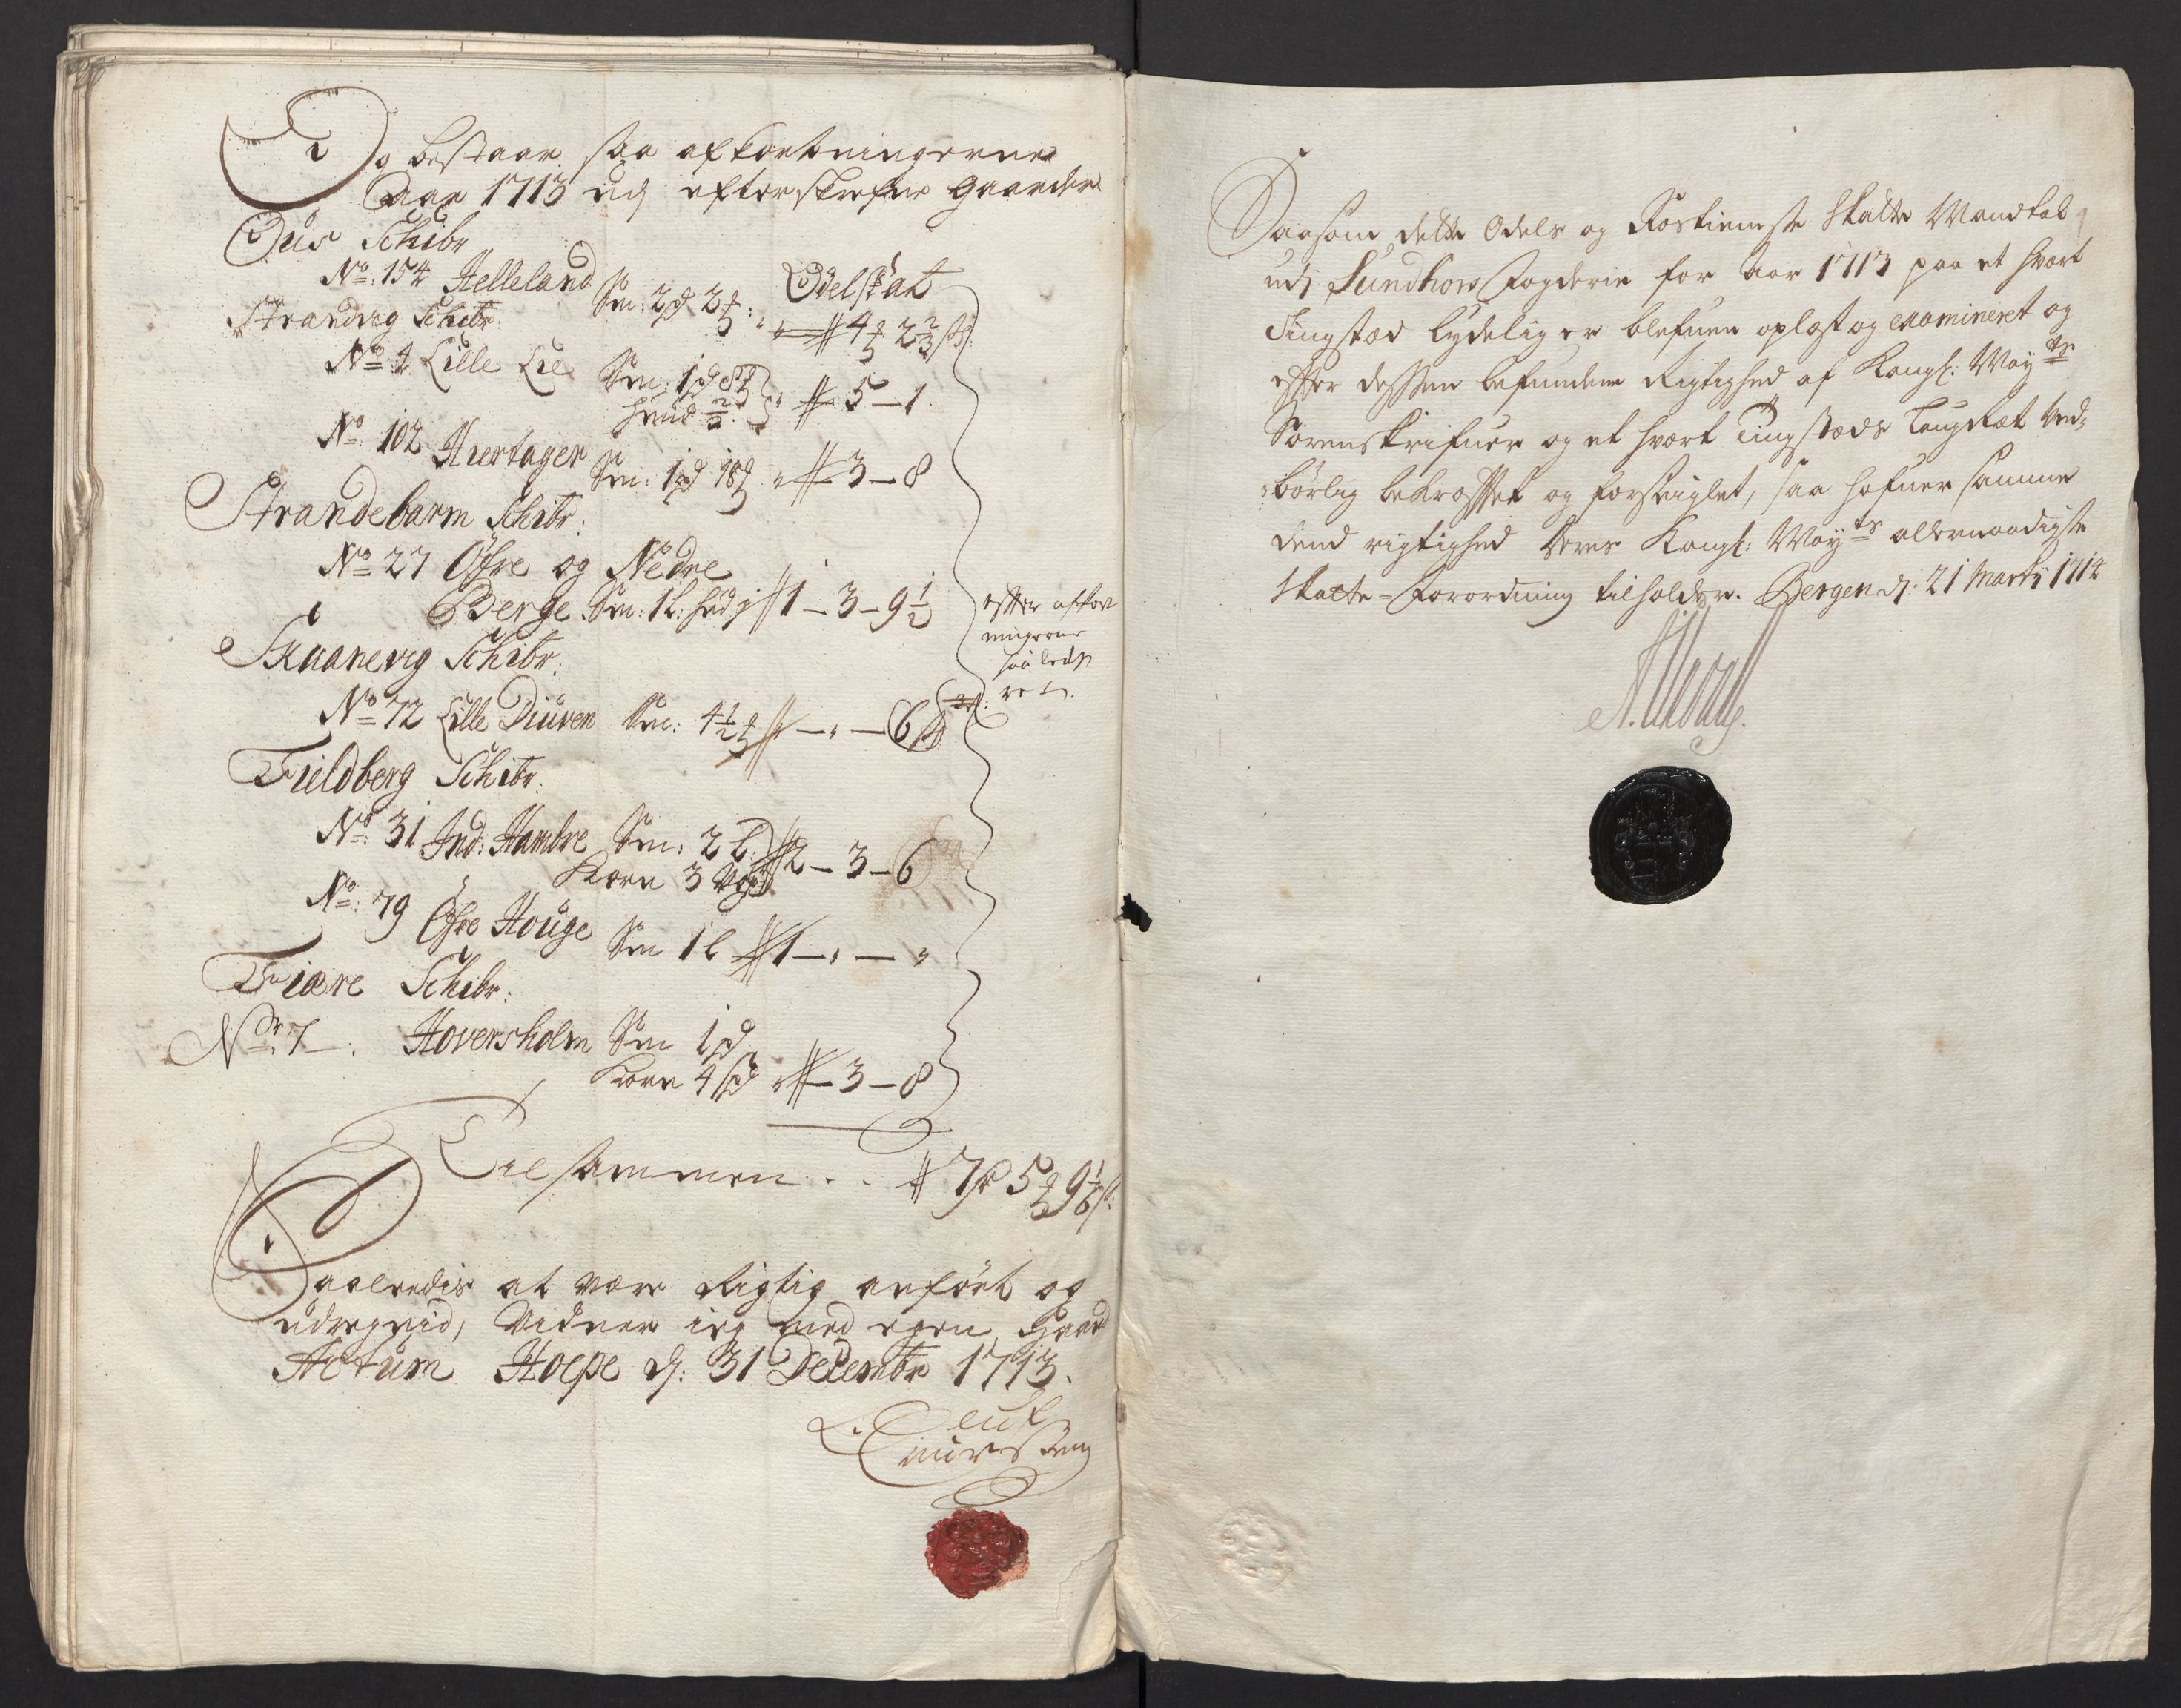 Og bestaar saa afkortningerne
Aar 1713 udj efterskrefne Gaarder
Øus Schibr
Odelskat
No: 154 Helleland Sm: 2 pd 2
4 2 2/3 s:
Strandvig Schibr:
No 4 Lille Lie Sm: 1 pd 8
Hud 2/3 5 – 1
No: 102 Hiertager Sm: 1 pd 18 3 – 8
Strandebarm Schibr:
No 27 Øfre og Nedre
Berge Sm: 1 L: hud j 1 – 3 – 9 1/2
efter afkort
ningerne
saaledis
Skaanevig Schibr:
No 72 Lille Diuven Sm: 4 1/2 – – 6
Fieldberg Schibr:
No: 31 Ind: Hambre Sm: 2 L:
Korn 3 2 – 3 – 6
No: 79 Øfre Houge Sm 1 L 1 – –
Fiære Schibr:
Nr: 7. Hoversholm Sm 1 pd
Korn 4 3 – 8
Tilsammen . . 7 5 9 1/6 s:
Saaledis at være Rigtig anført og
udregnid, Vidner ieg med egen Haand
Actum Hoepe d: 31 Decembr 1713.
Saasom dette Odels og Rostienest Skatte Mandtal
udj Sundhors Fogderie for Aar 1713 paa et hvert
Tingsted lydelig er blefuen oplæst og examineret og
efter dessen befundene Rigtighed af Kongl: Mayts
Sorenskrifuer og et hvert Tingsteds Laugræt ved-
børlig bekræfftet og forseiglet, saa hafuer samme
dend rigtighed Deres Kongl: Mayts allernaadigste
Skatte-Forordning tilholder. Bergen d: 21 Marti 1714